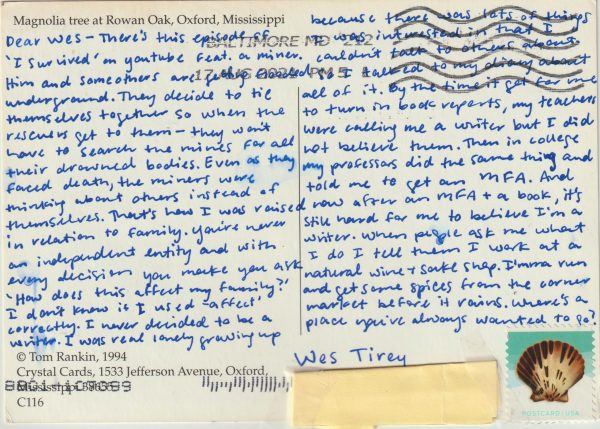 Magnolia tree at Rowan Oak, Oxford, Mississippi
Dear Wes - There's this episode of
'I Survived' on youtube feat. a miner.
Him and some others are
underground. They decide to tie
themselves together so when the
rescuers get to them - they won't
have to search the mines for all
their drowned bodies. Even as they
faced death, the miners were
thinking about others instead of
themselves. That's how I was raised
in relation to family. You're never
an independent entity and with
every decision you make you ask
'How does this affect my family?'
I don't know if I used 'affect'
correctly. I never decided to be a
writer. I was real lonely growing up
© Tom Rankin, 1994
Crystal Cards, 1533 Jefferson Avenue, Oxford,
Mississippi
C116
BALTIMORE MD 212
17 AUG 2024 PM
because there was lots of things
I was interested in that I
couldn't talk to others about
so I talked to my diary about
all of it. By the time it got for me
to turn in book reports, my teachers
were calling me a writer but I did
not believe them. Then in college
my professors did the same thing and
told me to get an MFA. And
now after an MFA + a book, it's
still hard for me to believe I'm a
writer. When people ask me what
I do I tell them I work at a
natural wine + sake shop. I'mma run
and get some spices from the corner
market before it rains. Where's a
place you've always wanted to go?
Wes Tirey
POSTCARD USA